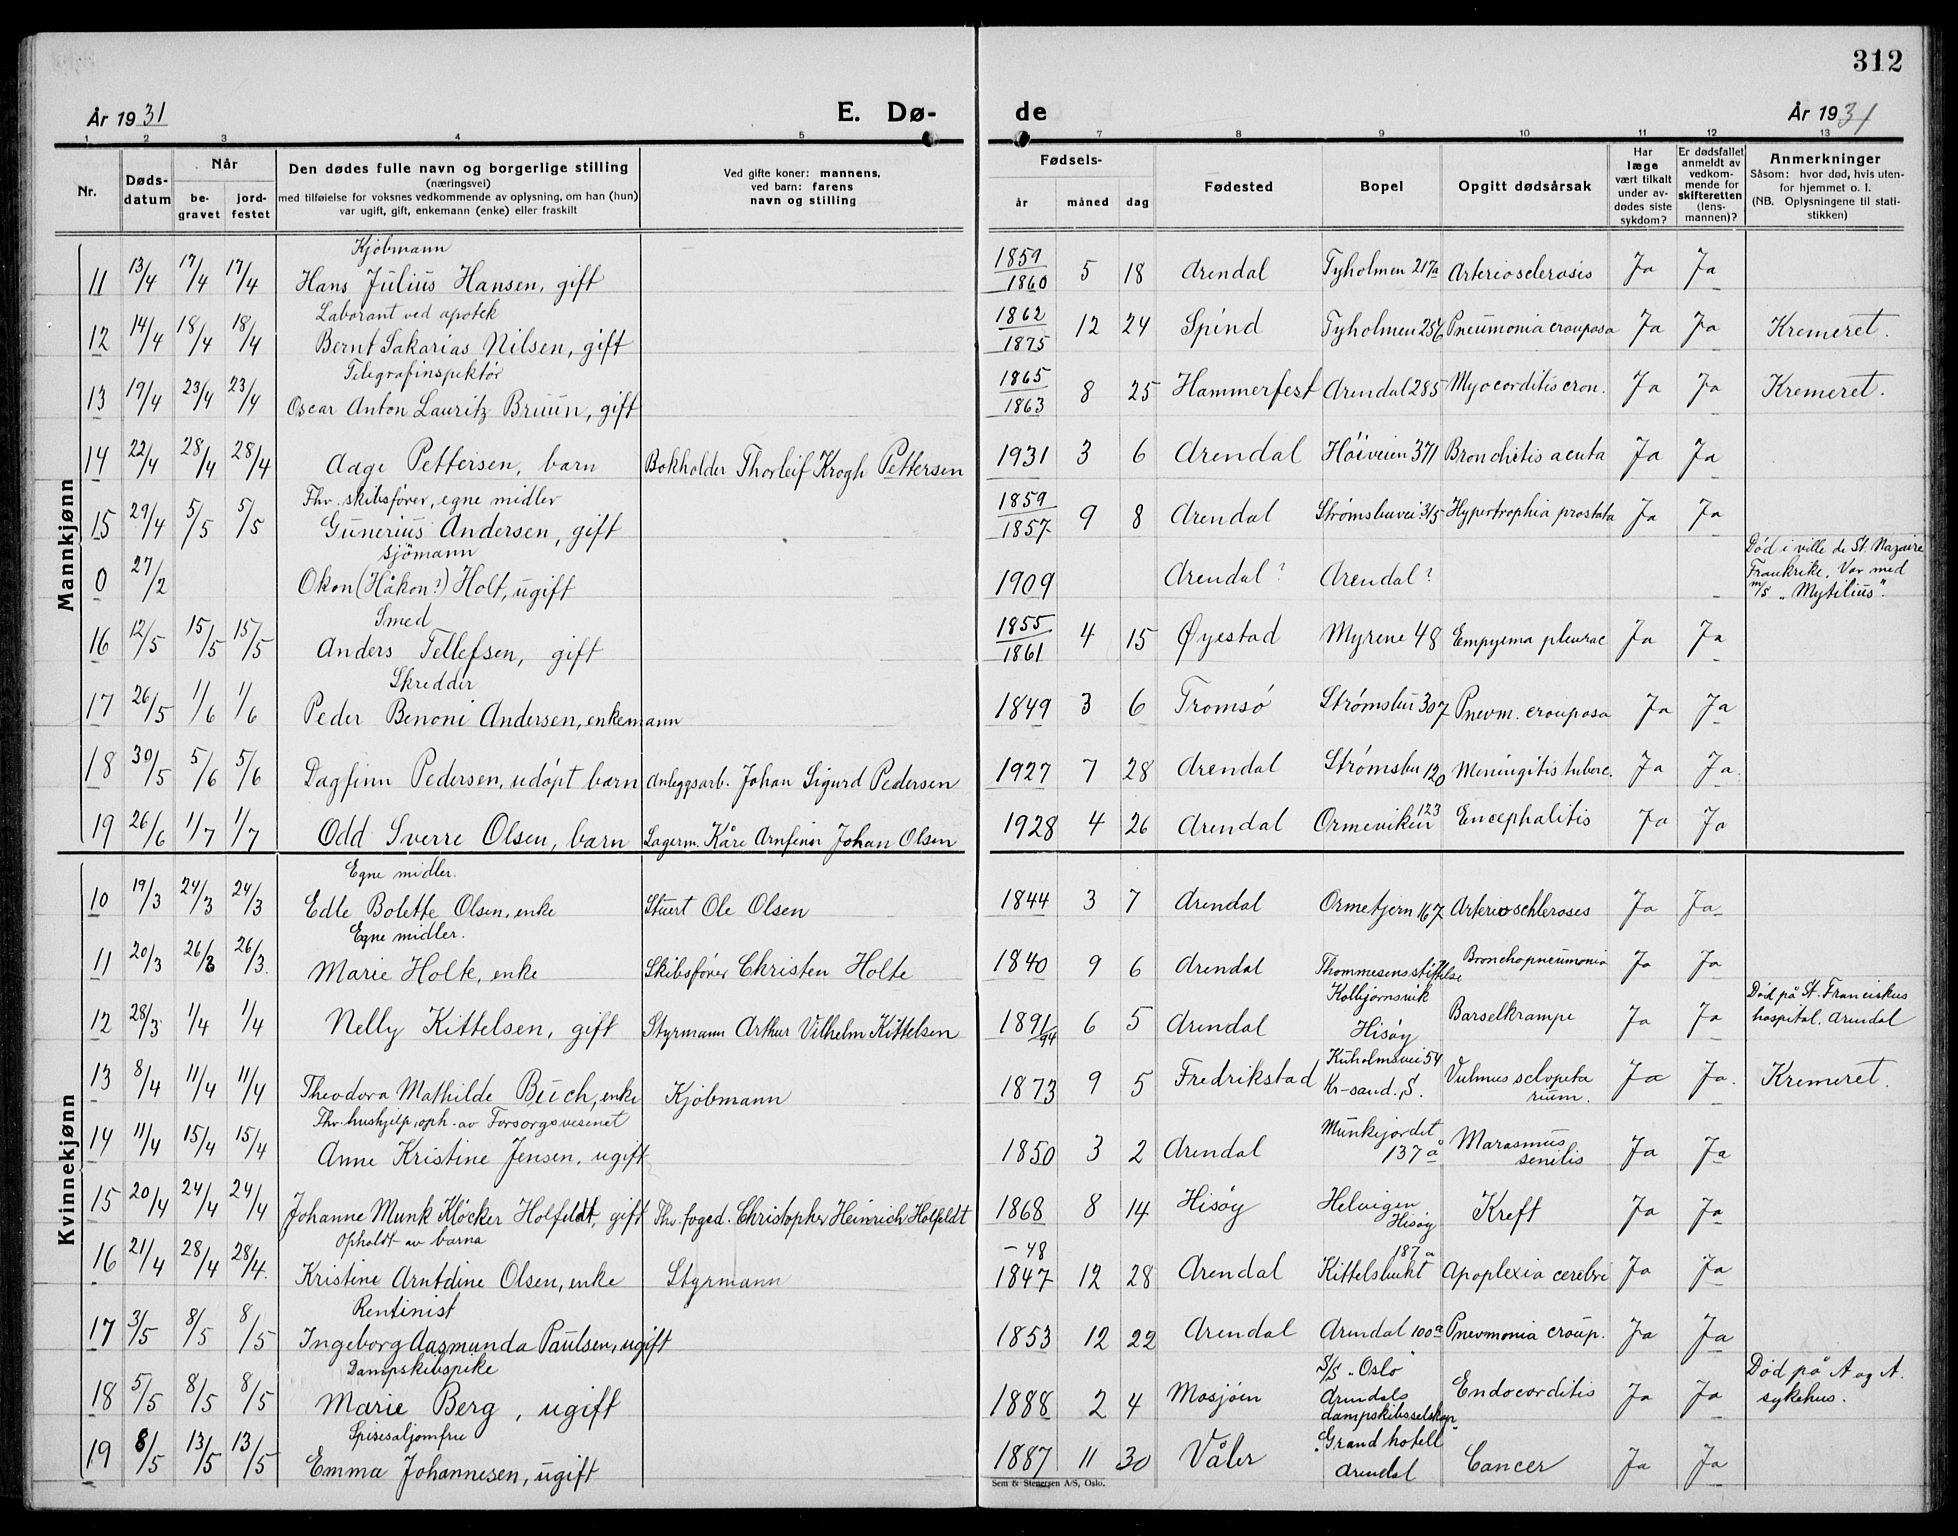 312
År 1931 E. Dø- de År 1931
1 2 3 4 5 7 8 9 10 11 12 13
Nr. Døds-datum Når be-gravet jord-festet Den dødes fulle navn og borgerlige stilling (næringsvei) med tilføielse for voksnes vedkommende av oplysning, om han (hun) var ugift, gift, enkemann (enke) eller fraskilt Ved gifte koner: mannens, ved barn: farens navn og stilling Fødsels- år måned dag Fødested Bopel Opgitt dødsårsak Har læge vært tilkalt under av-dødes siste sykdom? Er dødsfallet anmeldt av vedkom-mende for skifteretten (lens-mannen)? Anmerkninger Såsom: hvor død, hvis uten-for hjemmet o. l. (NB. Oplysningene til stati-stikken)
Mannkjønn
Kjøbmann
11 13/4 17/4 17/4 Hans Julius Hansen, gift 1859 1860 5 18 Arendal Tyholmen 217a Arteriosclerosis Ja Ja
Laborant ved apotek
12 14/4 18/4 18/4 Bernt Sakarias Nilsen, gift 1862 1875 12 24 Spind Tyholmen 256 Pneumonia crouposa Ja Ja Kremeret.
Telegrafinspektør
13 19/4 23/4 23/4 Oscar Anton Lauritz Bruun, gift 1865 1863 8 25 Hammerfest Arendal 285 Myocorditis cron. Ja Ja Kremeret.
14 22/4 28/4 28/4 Aage Pettersen, barn Bokholder Thorleif Krogh Pettersen 1931 3 6 Arendal Høiveien 371 Bronchitis acuta Ja Ja
Fhv. skibsfører, egne midler
15 29/4 5/5 5/5 Gunerius Andersen, gift 1859 1857 9 8 Arendal Strømsbuvei 315 Hypertrophia prostata Ja Ja
sjømann
0 27/2 Okon (Håkon?) Holt, ugift 1909 Arendal? Arendal? Død i ville de St. Nazaire Frankrike. Var med m/s "Mytilius".
Smed
16 12/5 15/5 15/5 Anders Tellefsen, gift 1855 1861 4 15 Øyestad Myrene 48 Empyema pleurae Ja Ja
Skredder
17 26/5 1/6 1/6 Peder Benoni Andersen, enkemann 1849 3 6 Tromsø Strømsbu 307 Pnevm. crouposa Ja Ja
18 30/5 5/6 5/6 Dagfinn Pedersen, udøpt barn Anleggsarb. Johan Sigurd Pedersen 1927 7 28 Arendal Strømsbu 120 Meningitis tuberc. Ja Ja
19 26/6 1/7 1/7 Odd Sverre Olsen, barn Lagerm. Kåre Arnfinn Johan Olsen 1928 4 26 Arendal Ormeviken 123 Encephalitis Ja Ja
Kvinnekjønn
Egne midler.
10 19/3 24/3 24/3 Edle Bolette Olsen, enke Stuert Ole Olsen 1844 3 7 Arendal Ormetjern 167 Arterioschleroses Ja Ja
Egne midler.
11 20/3 26/3 26/3 Marie Holte, enke Skibsfører Christen Holte 1840 9 6 Arendal Thommesensstiftelse Bronchopneumonia Ja Ja
12 28/3 1/4 1/4 Nelly Kittelsen, gift Styrmann Arthur Vilhelm Kittelsen 1891/94 6 5 Arendal Kolbjørnsvik Hisøy Barselkrampe Ja Ja Død på St. Franciskus hospital. Arendal
13 8/4 11/4 11/4 Theodora Mathilde Buch, enke Kjøbmann 1873 9 5 Fredrikstad Kuholmsvei 54 Kr-sand. S. Vulnus sclopetarium. Ja Ja Kremeret.
Fhv. hushjelp, oph. av Forsorgsvesenet
14 11/4 15/4 15/4 Anne Kristine Jensen, ugift 1850 3 2 Arendal Munkejordet 137a Marasmus senilis Ja Ja
15 20/4 24/4 24/4 Johanne Munk Kløcker Holfeldt, gift Fhv. foged. Christopher Heinrich Holfeldt 1868 8 14 Hisøy Helvigen Hisøy Kreft Ja Ja
Opholdt av barna
16 21/4 28/4 28/4. Kristine Arntdine Olsen, enke Styrmann -48 1847 12 28 Arendal Kittelsbukt 187a Apoplexia cerebri Ja Ja
Rentinist
17 3/5 8/5 8/5 Ingeborg Aasmunda Paulsen, ugift 1853 12 22 Arendal Arendal 100a Pnevmonia croup. Ja Ja
Dampskibspike
18 5/5 8/5 8/5 Marie Berg, ugift 1888 2 4 Mosjøen S/S "Oslo" Arendals dampskibsselskap Endocorditis Ja Ja Død på A og A. sykehus.
Spisesaljomfru
19 8/5 13/5 13/5 Emma Johannesen, ugift 1887 11 30 Våler "Grand hotell" Arendal Cancer Ja Ja
Sem & Stenersen A/S, Oslo.